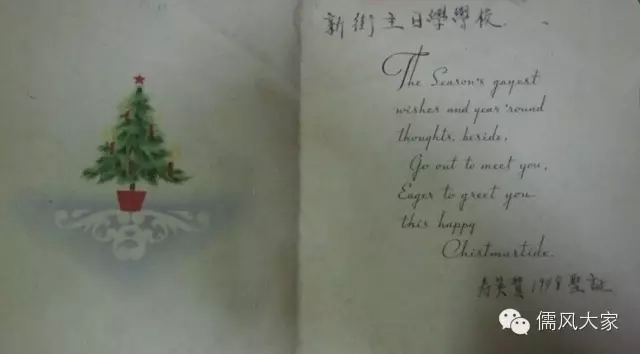 新街主日學學校
The Season's gayest
wishes and year 'round
thoughts, beside,
Go out to meet you,
Eager to greet you
this happy
Christmastide.
寿英賀 1948 聖誕
儒风大家